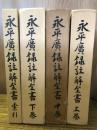 永平廣録註解全書 上巻
永平廣録註解全書 中巻
永平廣録註解全書 下巻
永平廣録註解全書 索引